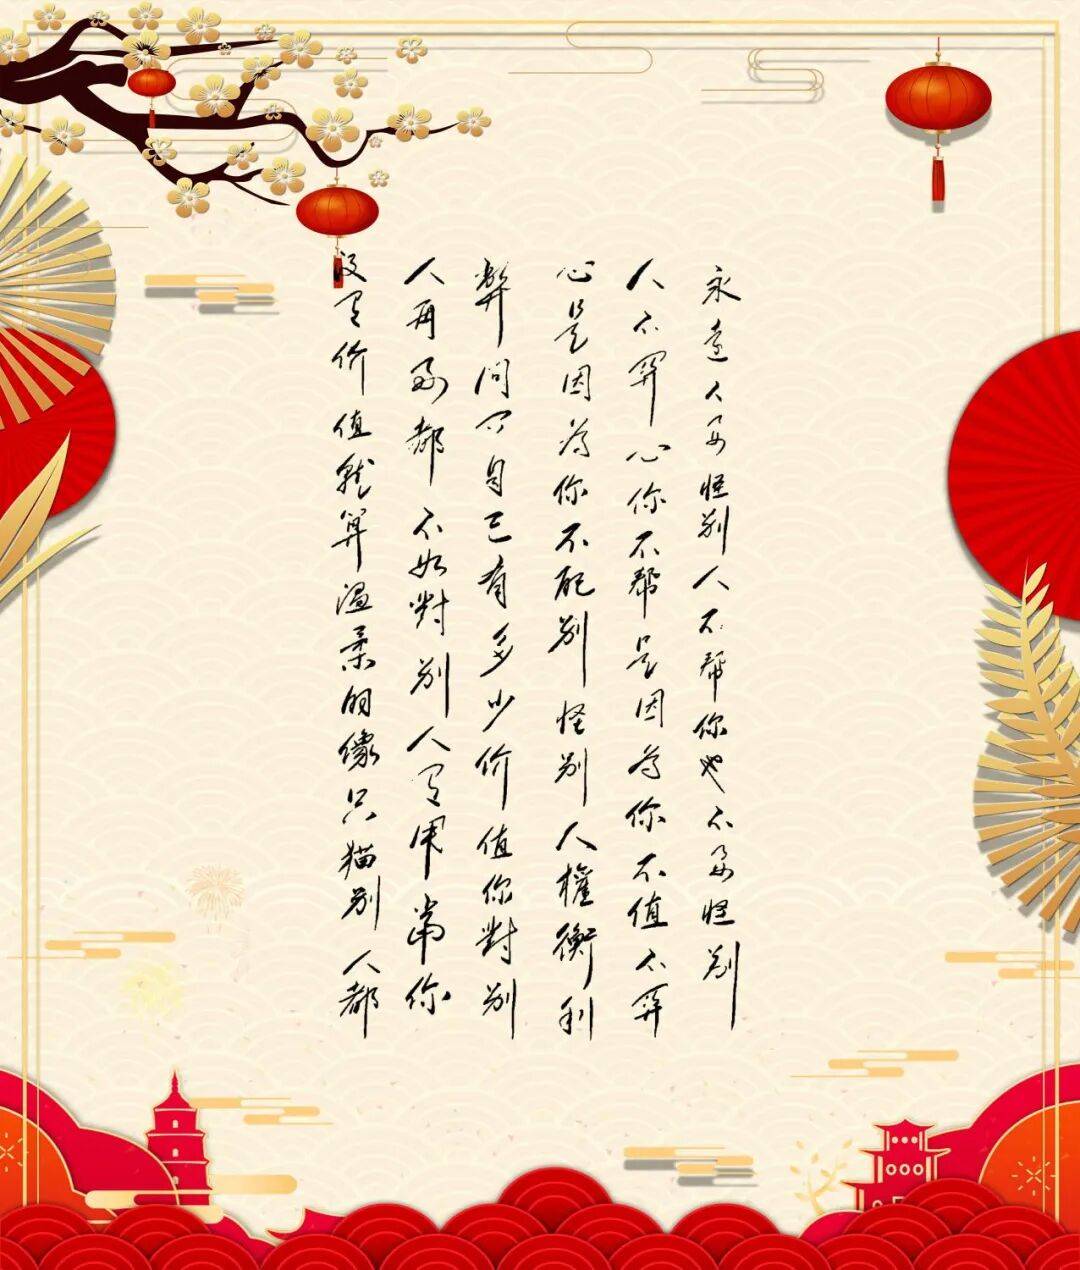 永遠不要怪别人不帮你也不要怪别
人不關心你不帮是因為你不值不關
心是因為你不配别怪别人權衡利
弊问问自己有多少价值你對别
人再好都不如對别人有用當你
没有价值就算温柔的像只猫别人都